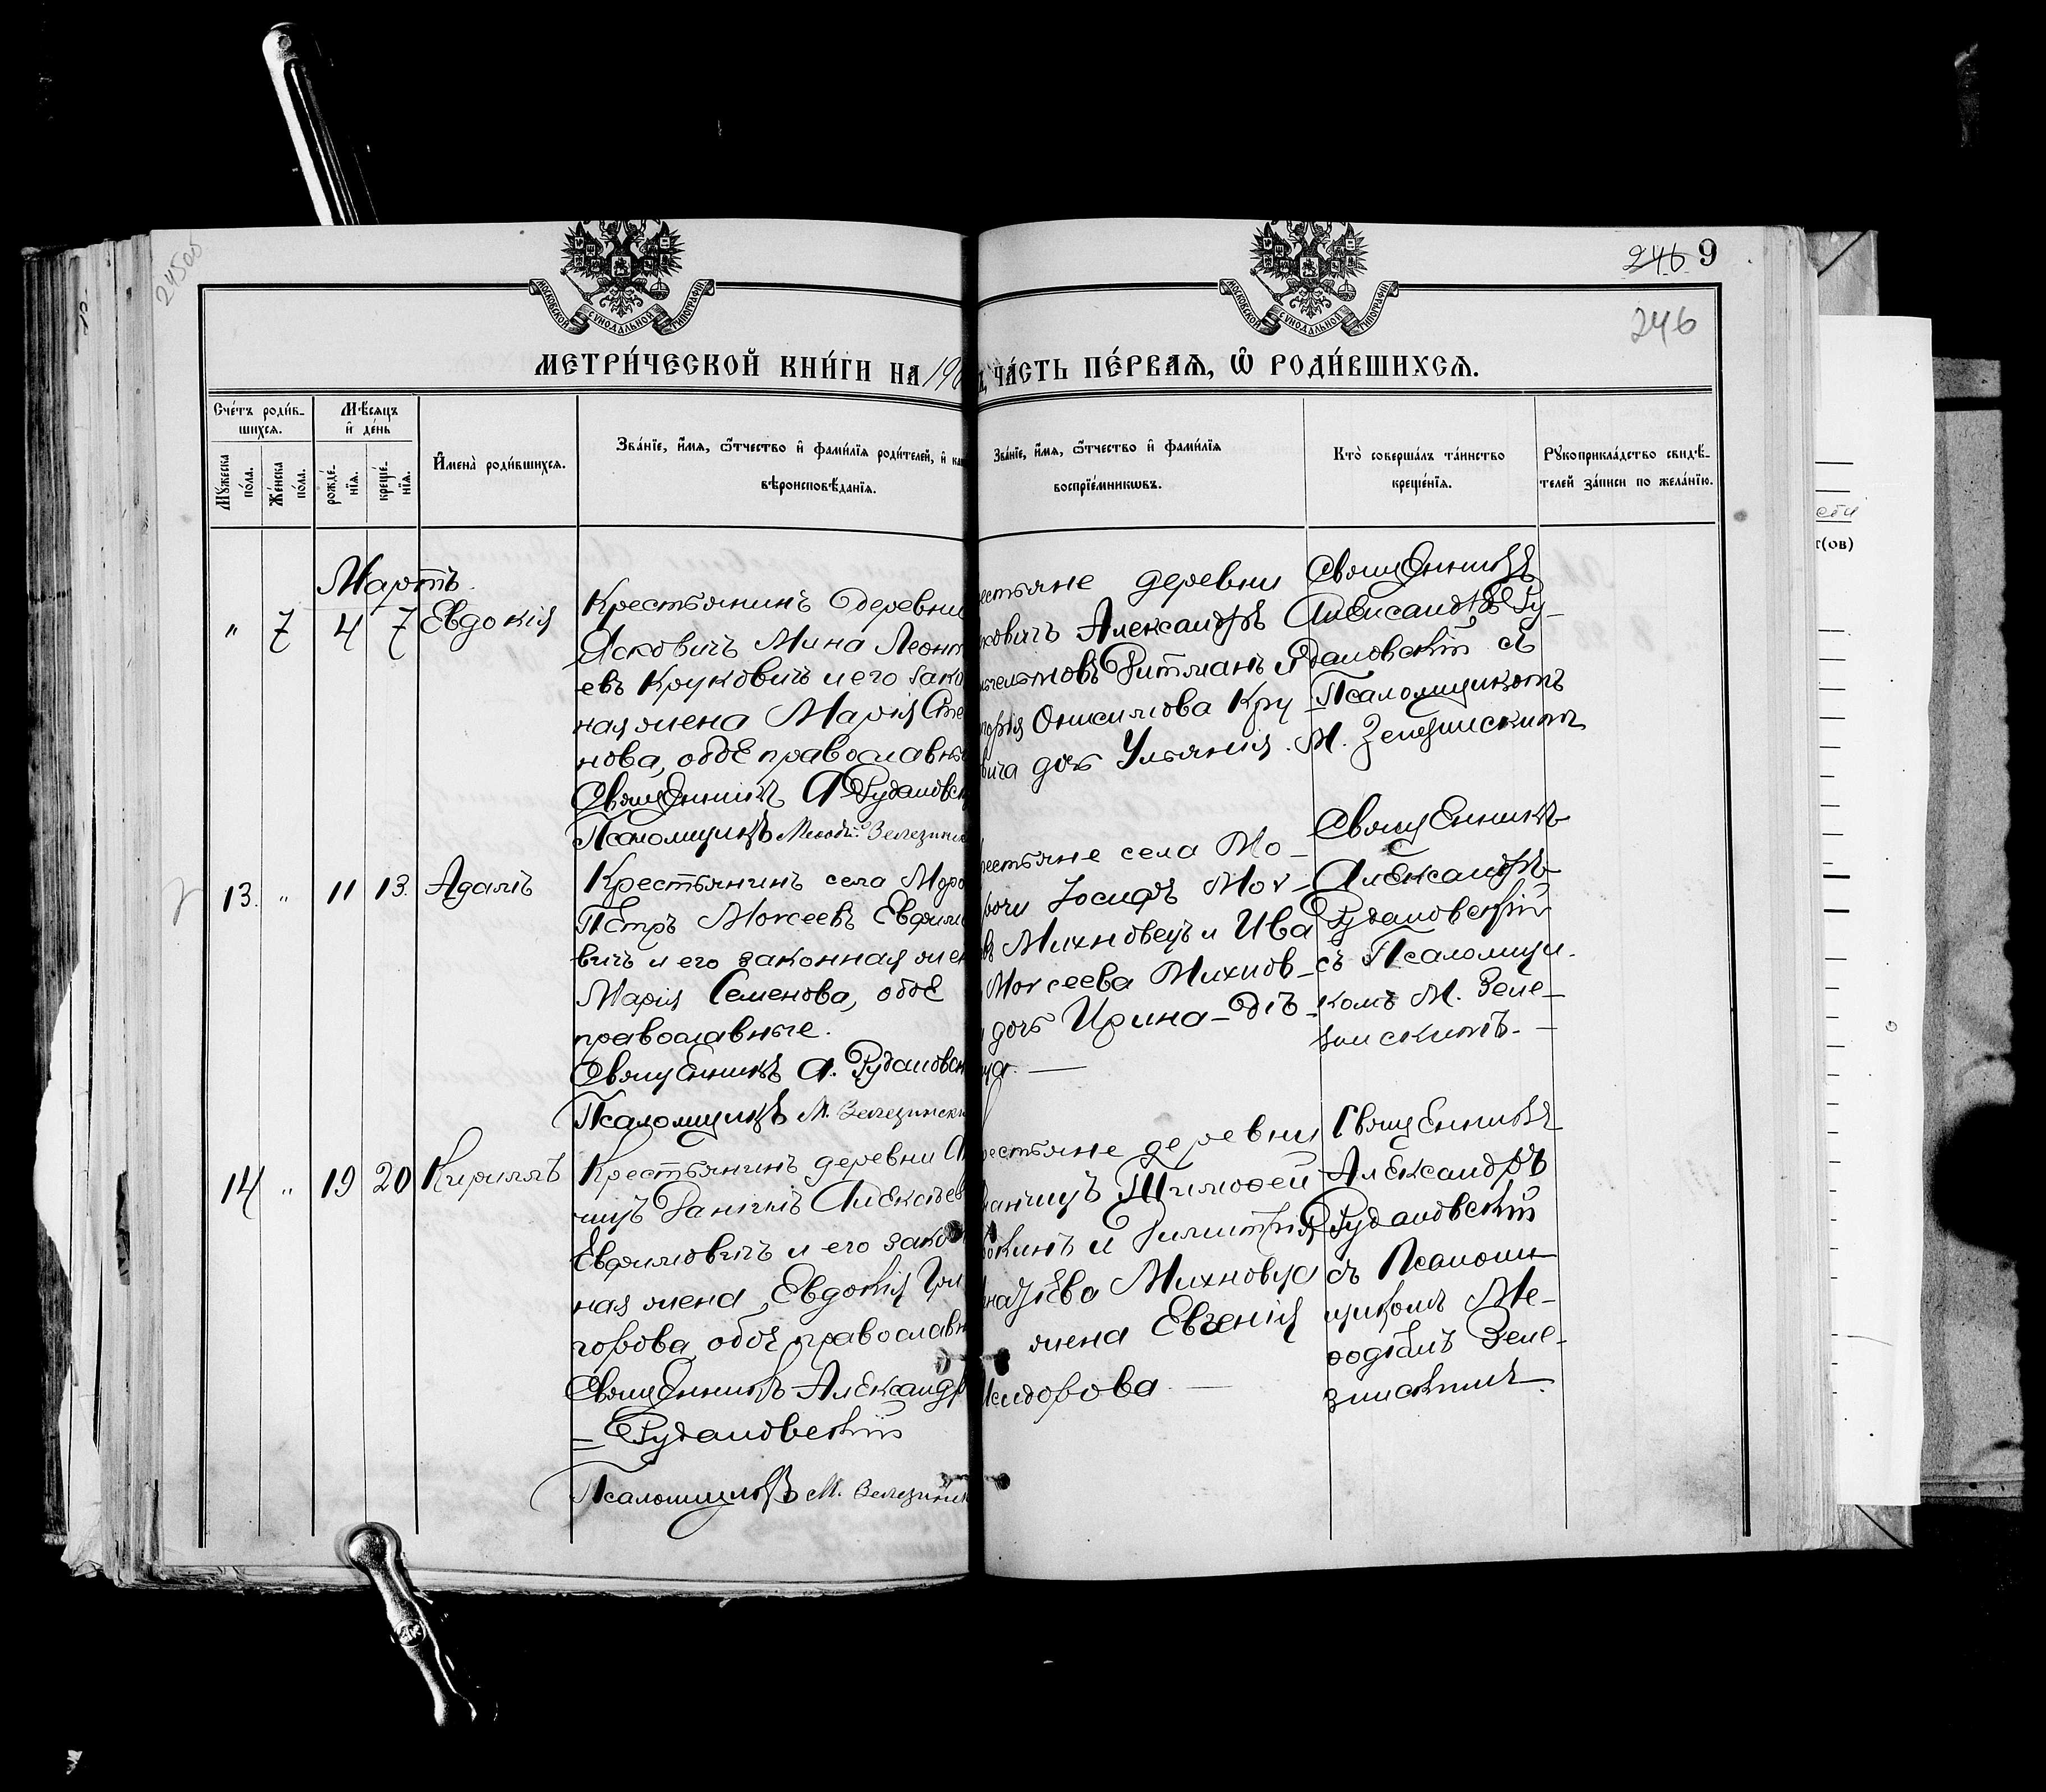 24505
246 9
246
МОСКОВСКОЙ СѴНОДАЛЬНОЙ ТИПОГРАФІИ
МОСКОВСКОЙ СѴНОДАЛЬНОЙ ТИПОГРАФІИ
МЕТРИ́ЧЕСКОЙ КНИ́ГИ НА 190
ЧА́СТЬ ПЕ́РВАѦ, Ѡ҃ РОДИ́ВШИХСѦ.
Сче́тъ роди́в-
шихсѧ.
Мѣ́сѧцъ
и҆ де́нь
Мꙋ́жеска по́ла.
Же́нска по́ла.
рожде́-
нїѧ.
креще́-
нїѧ.
И҆мена̀ роди́вшихсѧ.
Зва́нїе, и҆́мѧ, ѻ҆́тчество и҆ фами́лїѧ роди́телей, и҆ как
вѣроисповѣ́данїѧ.
Зва́нїе, и҆́мѧ, ѻ҆́тчество и҆ фами́лїѧ
воспрїе́мникѡвъ.
Кто̀ соверша́лъ та́инство
креще́нїѧ.
Рꙋкоприкла́дство свидѣ́-
телей за́писи по жела́нїю.
Мартъ.
" 7 4 7 Евдокія
Крестьянинъ деревни
Ясковичъ Мина Леонт
евъ Круковичъ и его зако
ная жена Марія Сте
нова, обое православны
Священникъ А Рудановск
Псаломщикъ Меѳоді: Зелезинск
естьяне деревни
сковичъ Александръ
Ритманъ и
Онисимова Кру
вича дочь Ульянія.
Священникъ
Александръ Ру-
дановскій съ
Псаломщикомъ
М. Зелезинскимъ
13. " 11 13. Адамъ
Крестьянинъ села Моро
Петръ Моисеевъ Евфимо
вичъ и его законная жен
Марія Семенова, обое
православные.
Священникъ А. Рудановск
Псаломщикъ М. Зелезинск
рестьяне села Мо-
рочи Іосифъ Мои-
въ Михновецъ и Ива
Моисеева Михнов-
дочь Ирина - дѣ-
ица. —
Священникъ
Александръ
Рудановскій
съ Псаломщи-
комъ М. Зеле-
зинскимъ. —
14 " 19 20 Кириллъ
Крестьянинъ деревни Ан
чицъ Даніилъ Алексѣев
Евфимовичъ и его закон
ная жена Евдокія Гри
горова, обое православн
Священникъ Александр
= Рудановскій
Псаломщикъ М. Зелезинск
рестьяне деревни
анчицъ Тимоѳей
и Димитрія
Михновца
жена Евгенія
Исидорова. —
Священникъ
Александръ
Рудановскій
съ Псаломщи
щикомъ Ме-
ѳодіемъ Зеле-
зинскимъ.
сти
т(ов)